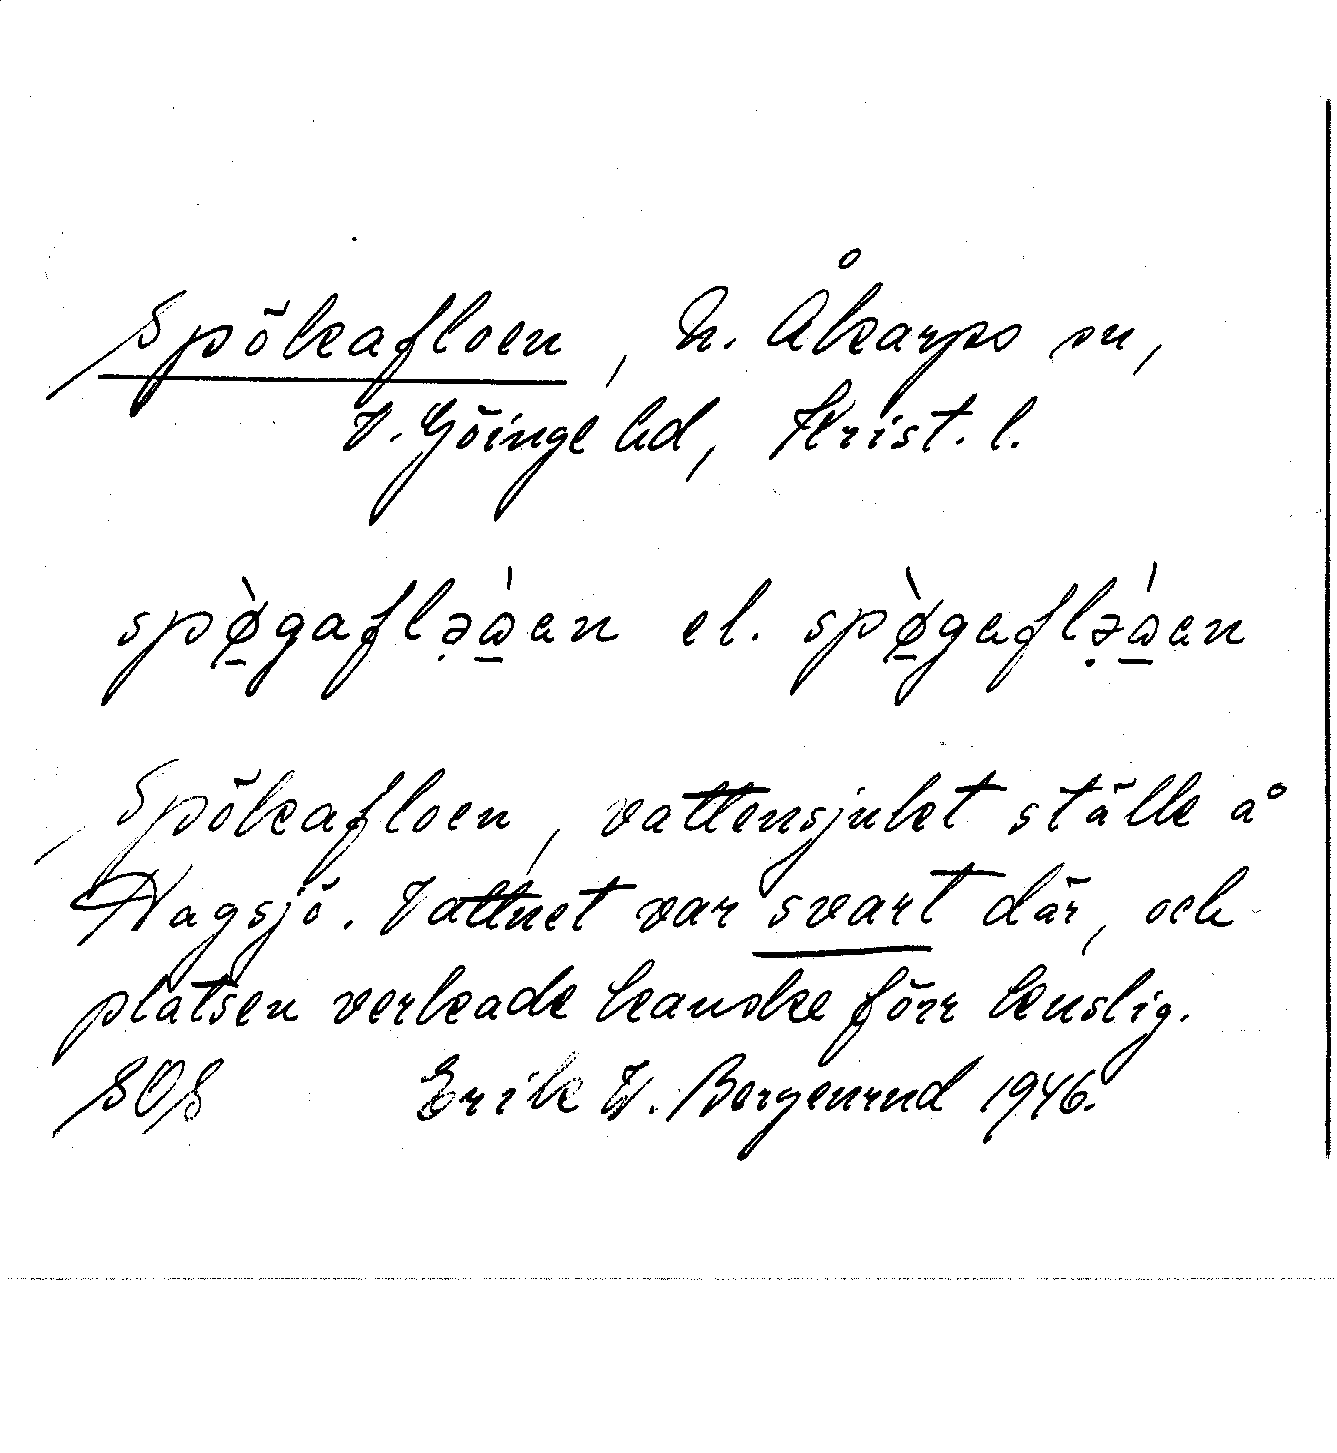 Spökafloen, N. Åkarps sn,
V. Göinge hd, Krist. l.
spø̱̀gaflə̣ώ̱en el. spø̱̀gaflə̣ώ̱en
Spökafloen, vattensjukt ställe å
Hagsjö. Vattnet var svart där, och
platsen verkade kanske förr kuslig.
SOS Erik W. Bergenrud 1946.